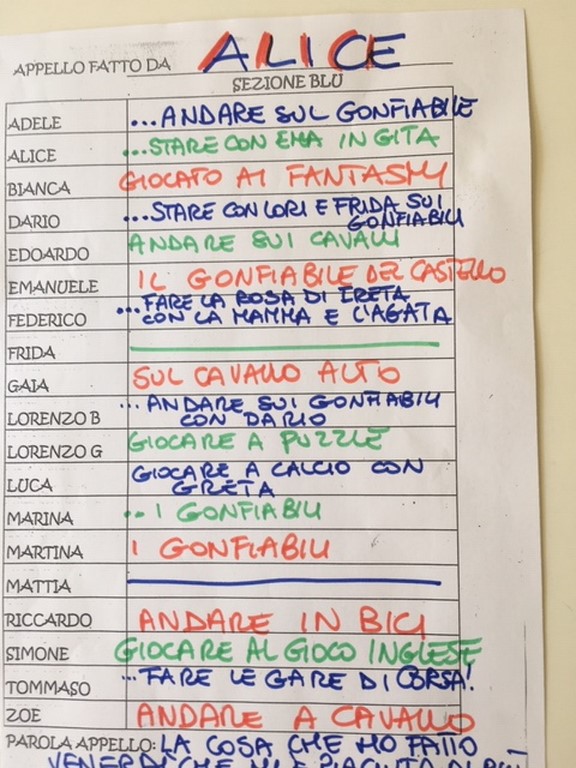 APPELLO FATTO DA ALICE
SEZIONE BLU
ADELE ...ANDARE SUL GONFIABILE
ALICE ...STARE CON EMA IN GITA
BIANCA GIOCATO AI FANTASMI
DARIO ...STARE CON LORI E FRIDA SUI
GONFIABILI
EDOARDO ANDARE SUI CAVALLI
EMANUELE IL GONFIABILE DEL CASTELLO
FEDERICO ...FARE LA ROSA DI CRETA
CON LA MAMMA E L'AGATA
FRIDA
GAIA SUL CAVALLO ALTO
LORENZO B ...ANDARE SUI GONFIABILI
CON DARIO
LORENZO G GIOCARE A PUZZLE
LUCA GIOCARE A CALCIO CON
GRETA
MARINA ...I GONFIABILI
MARTINA I GONFIABILI
MATTIA
RICCARDO ANDARE IN BICI
SIMONE GIOCARE AL GIOCO INGLESE
TOMMASO ...FARE LE GARE DI CORSA!
ZOE ANDARE A CAVALLO
PAROLA APPELLO: LA COSA CHE HO FATTO
VENERDÌ CHE MI È PIACIUTA DI PIÙ